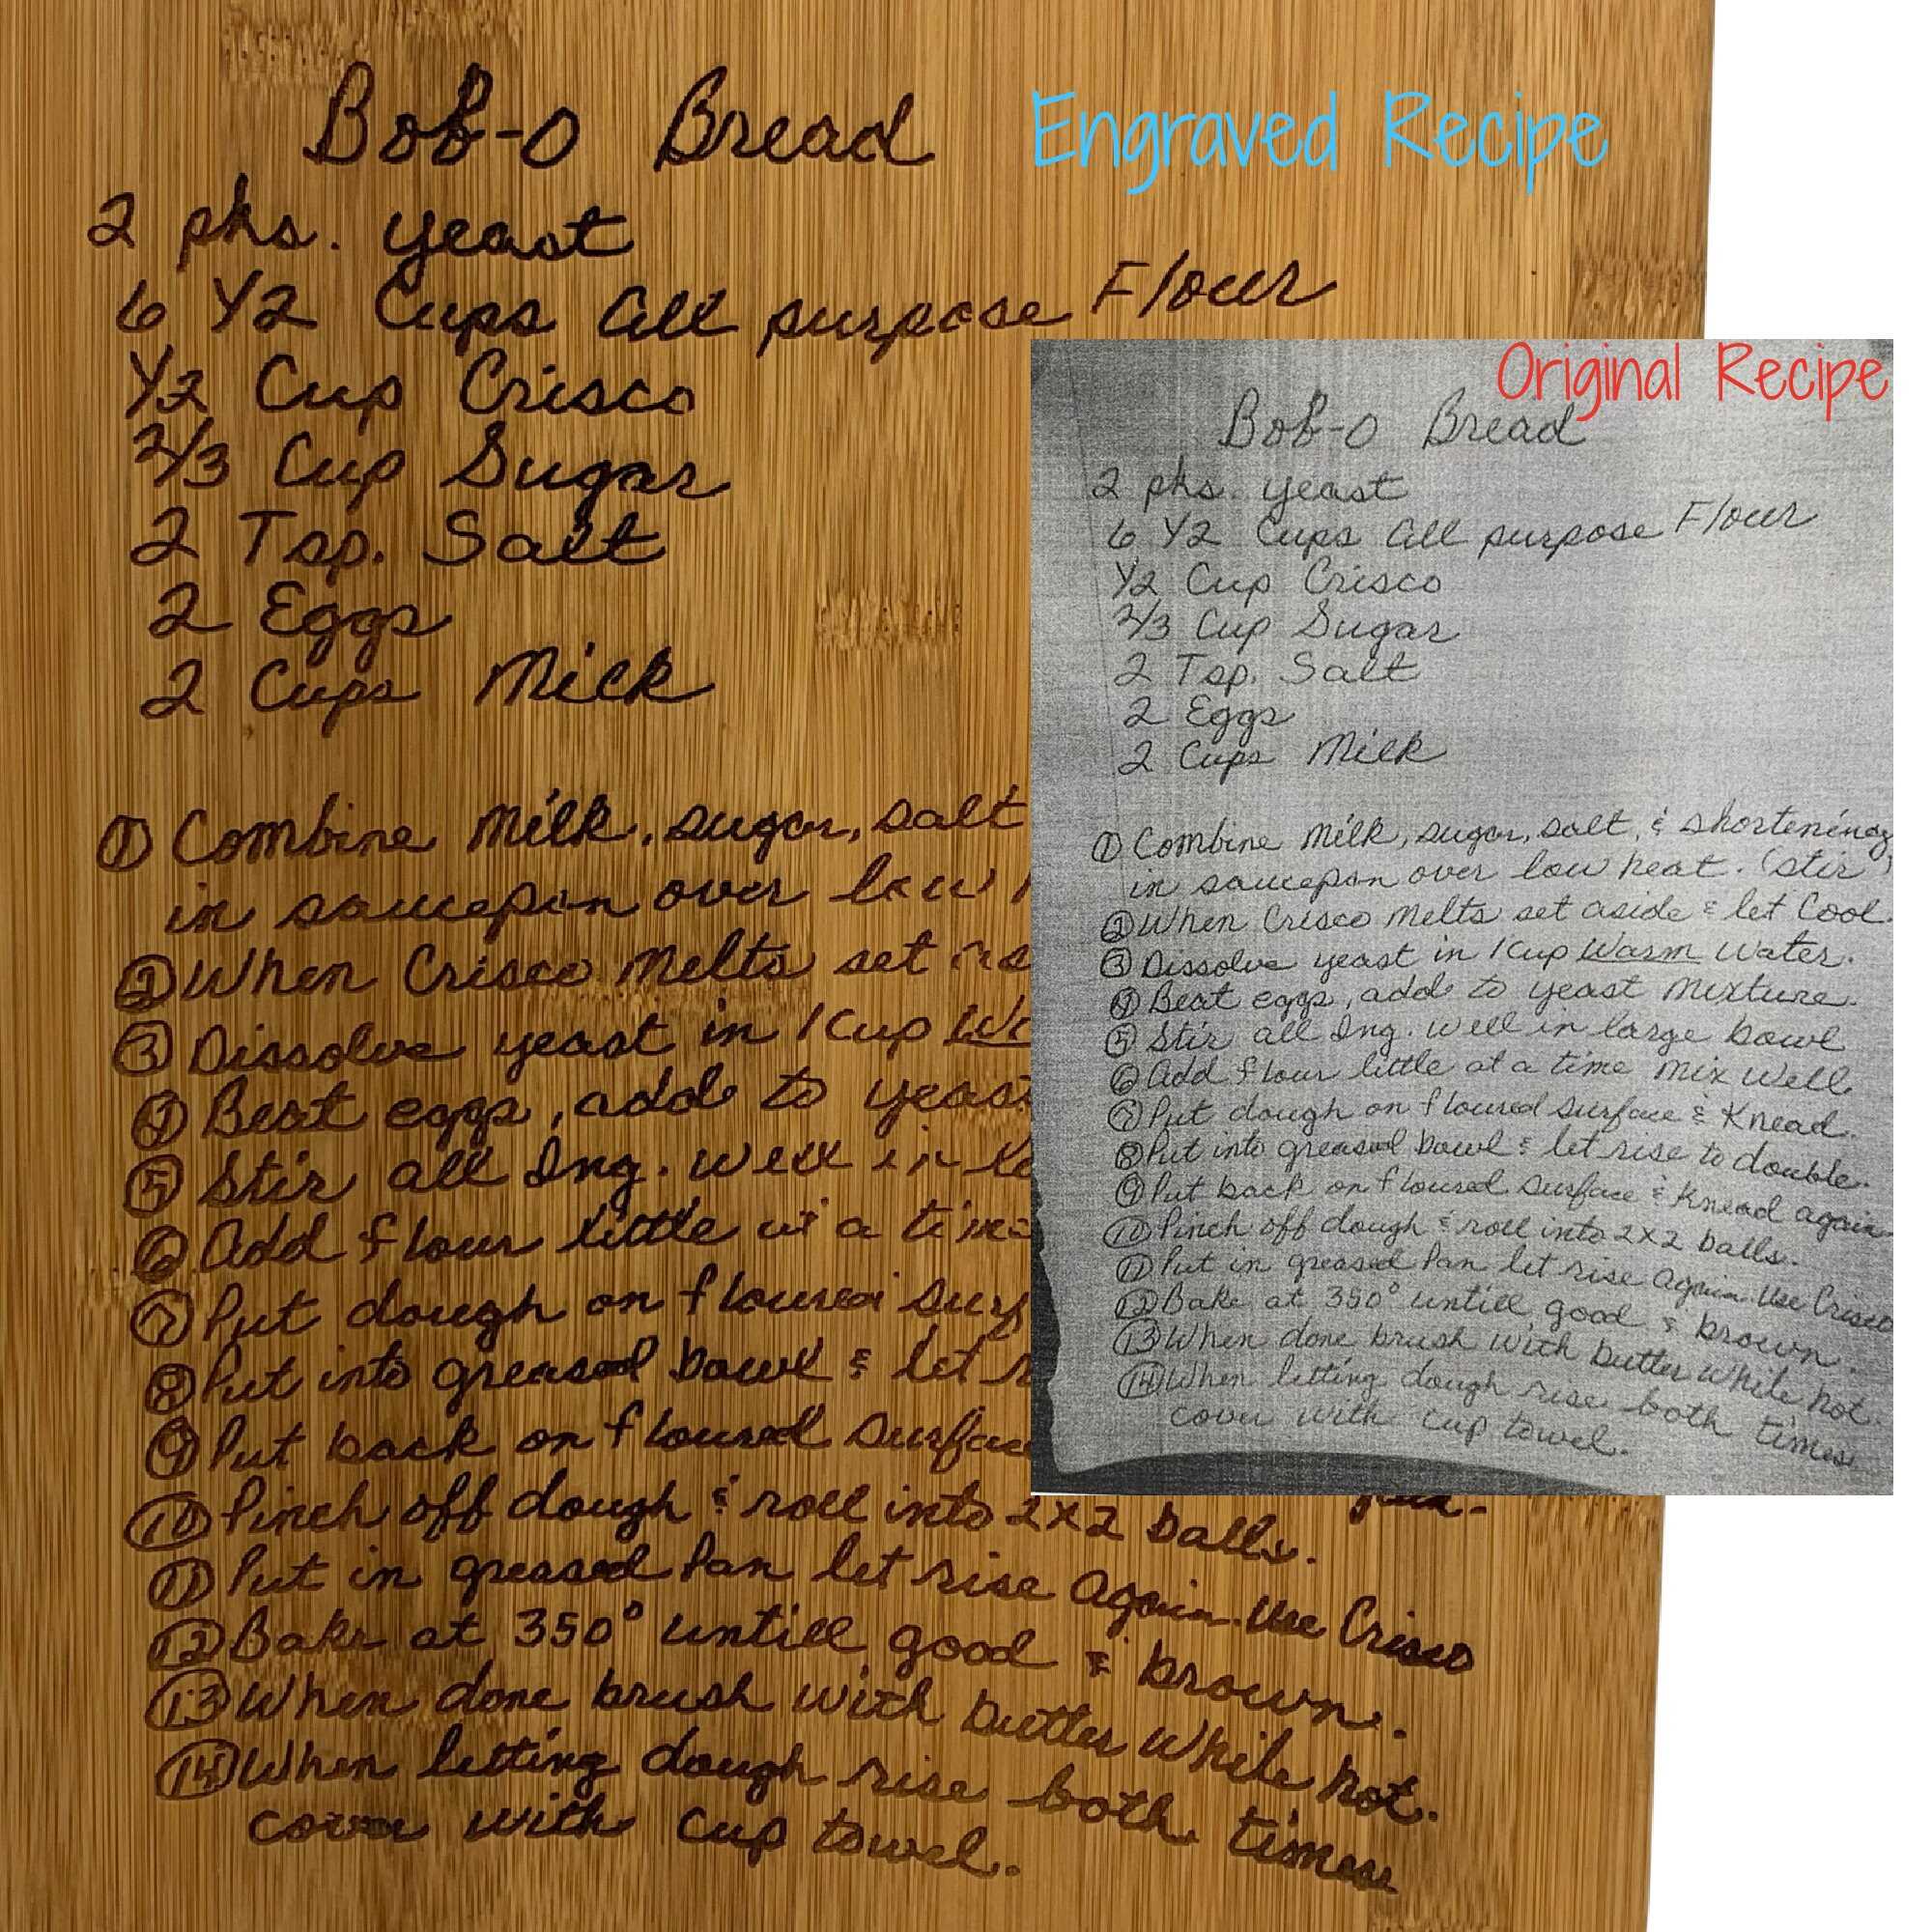 Bob-o Bread
2 pks. yeast
6 1/2 Cups All purpose Flour
1/2 Cup Crisco
2/3 Cup Sugar
2 Tsp. Salt
2 Eggs
2 Cups Milk
① Combine Milk, sugar, salt
in saucepan over low
② When Crisco Melts set as
③ Dissolve yeast in 1 Cup Wa
④ Beat eggs, add to yeast
⑤ Stir all Ing. well in la
⑥ Add flour little at a time
⑦ Put dough on floured surf
⑧ Put into greased bowl & let r
⑨ Put back on floured surface
⑩ Pinch off dough & roll into 2x2 balls.
⑪ Put in greased Pan let rise again. Use Crisco
⑫ Bake at 350° untill good & brown.
⑬ When done brush with butter while hot.
⑭ When letting dough rise both times
cover with cup towel.
Engraved Recipe
Original Recipe
Bob-o Bread
2 pks. yeast
6 1/2 Cups All purpose Flour
1/2 Cup Crisco
2/3 Cup Sugar
2 Tsp. Salt
2 Eggs
2 Cups Milk
① Combine Milk, sugar, salt, & shortening
in saucepan over low heat. (stir)
② When Crisco Melts set aside & let Cool.
③ Dissolve yeast in 1 Cup Warm Water.
④ Beat eggs, add to yeast Mixture.
⑤ Stir all Ing. well in large bowl
⑥ Add flour little at a time Mix Well
⑦ Put dough on floured surface & Knead.
⑧ Put into greased bowl & let rise to double.
⑨ Put back on floured surface & Knead again
⑩ Pinch off dough & roll into 2x2 balls.
⑪ Put in greased Pan let rise again. Use Crisco
⑫ Bake at 350° untill good & brown.
⑬ When done brush with butter while hot.
⑭ When letting dough rise both times
cover with cup towel.